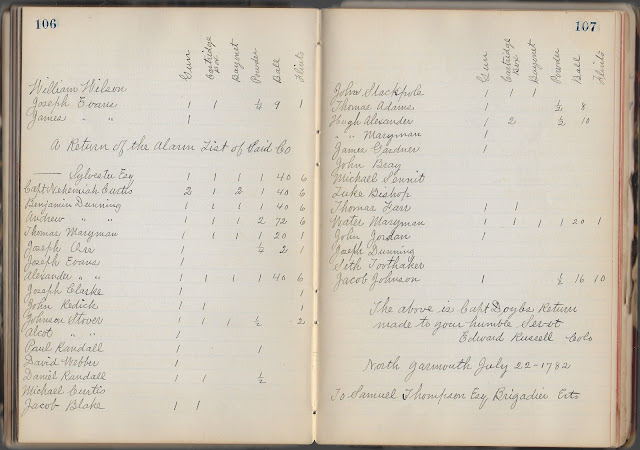 106
Gun Cartridge Box Bayonet Powder Ball Flints
William Wilson
Joseph Evans 1 1 ¼ 9 1
James " " 1
A Return of the Alarm List of Said Co
—— Sylvester Esq 1 1 1 1 40 6
Capt Nehemiah Curtis 2 1 2 1 40 6
Benjamin Dunning 1 1 1 1 40 6
Andrew " " 1 1 1 2 72 6
Thomas Maryman 1 1 1 1 20 1
Joseph Orr 1 ¼ 2 1
Joseph Evans 1
Alexander " " 1 1 1 1 40 6
Joseph Clarke 1 1
John Redick 1 1
Johnson Stover 1 1 1 ½ 2
Alcot " " 1
Paul Randall 1 1
David Webber 1
Daniel Randall 1 1 ½
Michael Curtis
Jacob Blake 1 1
107
Gun Cartridge Box Bayonet Powder Ball Flints
John Stackpole 1 1 1
Thomas Adams 1 ½ 8
Hugh Alexander 1 2 ½ 10
" " Maryman 1
James Gardner 1
John Bray
Michael Sennit
Luke Bishop
Thomas Farr 1 1
Water Maryman 1 1 1 1 20 1
John Jordan 1
Joseph Dunning
Seth Toothaker
Jacob Johnson 1 ½ 16 10
The above is Capt Doyles Return
made to your humble Servt
Edward Russell Colo
North Yarmouth July 22-1782
To Samuel Thompson Esq Brigadier Etc